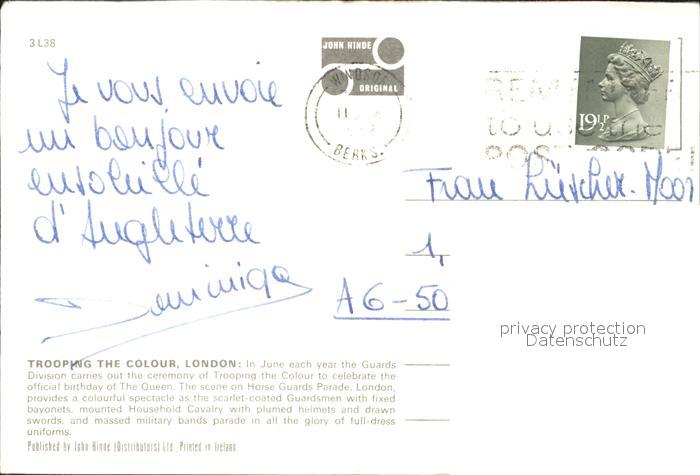 3 L38
JOHN HINDE
ORIGINAL
BERKS.
19½P
REM
to us the
Je vous envoie
un bonjour
ensoleillé
d'Angleterre
Frau Lüscher-Moor
1,
A6-50
privacy protection
Datenschutz
TROOPING THE COLOUR, LONDON: In June each year the Guards
Division carries out the ceremony of Trooping the Colour to celebrate the
official birthday of The Queen. The scene on Horse Guards Parade, London,
provides a colourful spectacle as the scarlet-coated Guardsmen with fixed
bayonets, mounted Household Cavalry with plumed helmets and drawn
swords, and massed military bands parade in all the glory of full-dress
uniforms.
Published by John Hinde (Distributors) Ltd., Printed in Ireland.